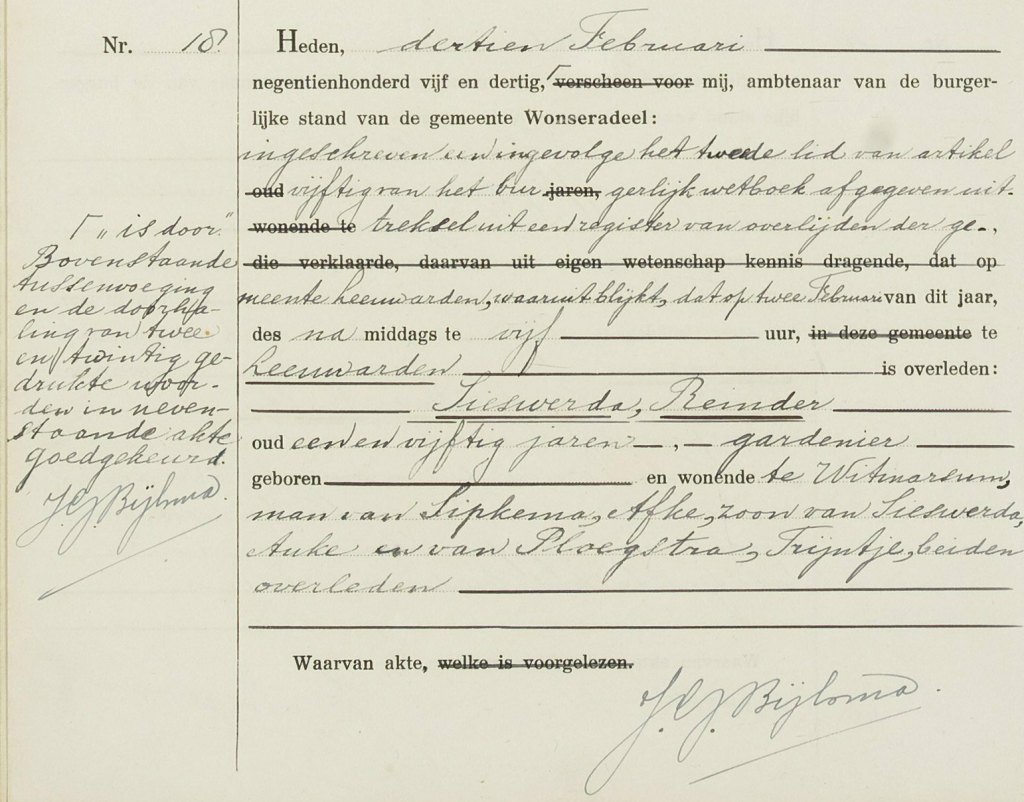 Nr. 18
Heden, dertien Februari
negentienhonderd vijf en dertig, ⌈ verscheen voor mij, ambtenaar van de burger-
lijke stand van de gemeente Wonseradeel:
ingeschreven een ingevolge het tweede lid van artikel
oud vijftig van het bur jaren, gerlijk wetboek afgegeven uit-
wonende te treksel uit een register van overlijden der ge-,
die verklaarde, daarvan uit eigen wetenschap kennis dragende, dat op
meente Leeuwarden, waaruit blijkt, dat op twee Februari van dit jaar,
des na middags te vijf uur, in deze gemeente te
Leeuwarden is overleden:
Sieswerda, Reinder
oud een en vijftig jaren —, — gardenier
geboren en wonende te Witmarsum,
man van Sipkema, Afke, zoon van Sieswerda,
Auke en van Ploegstra, Trijntje, beiden
overleden
Waarvan akte, welke is voorgelezen.
J.G.J. Bijlsma.
⌈ „is door"
Bovenstaande
tussenvoeging
en de doorha-
ling van twee
en twintig ge-
drukte woor-
den in neven-
staande akte
goedgekeurd.
J.G.J. Bijlsma.